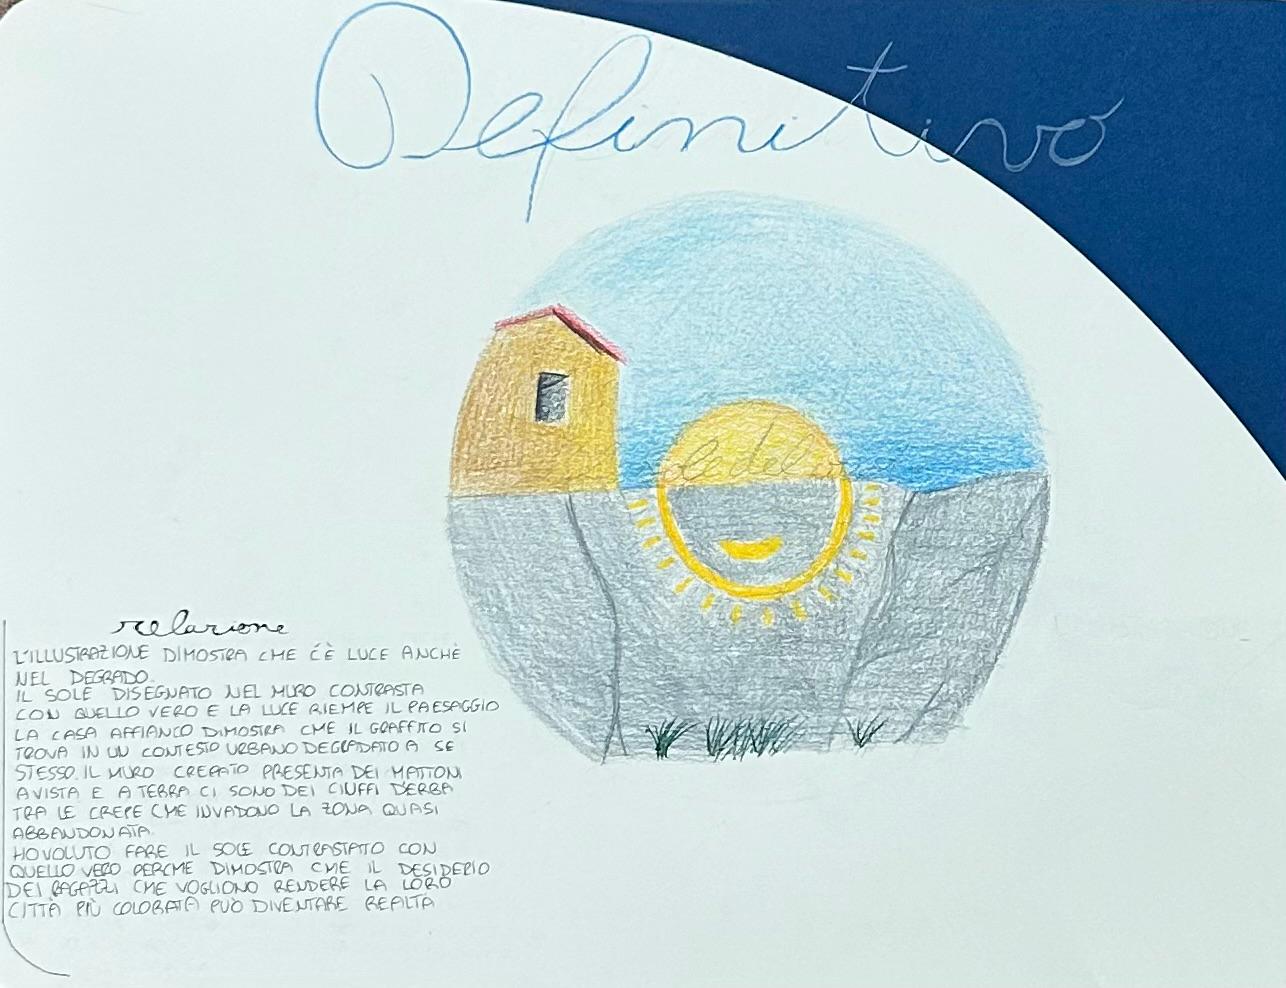 Definitivo
relazione
L'ILLUSTRAZIONE DIMOSTRA CHE C'È LUCE ANCHE
NEL DEGRADO.
IL SOLE DISEGNATO NEL MURO CONTRASTA
CON QUELLO VERO E LA LUCE RIEMPE IL PAESAGGIO
LA CASA AFFIANCO DIMOSTRA CHE IL GRAFFITO SI
TROVA IN UN CONTESTO URBANO DEGRADATO A SE
STESSO. IL MURO CREPATO PRESENTA DEI MATTONI
A VISTA E A TERRA CI SONO DEI CIUFFI D'ERBA
TRA LE CREPE CHE INVADONO LA ZONA QUASI
ABBANDONATA.
HO VOLUTO FARE IL SOLE CONTRASTATO CON
QUELLO VERO PERCHE DIMOSTRA CHE IL DESIDERIO
DEI RAGAZZI CHE VOGLIONO RENDERE LA LORO
CITTÀ PIÙ COLORATA PUÒ DIVENTARE REALTÀ